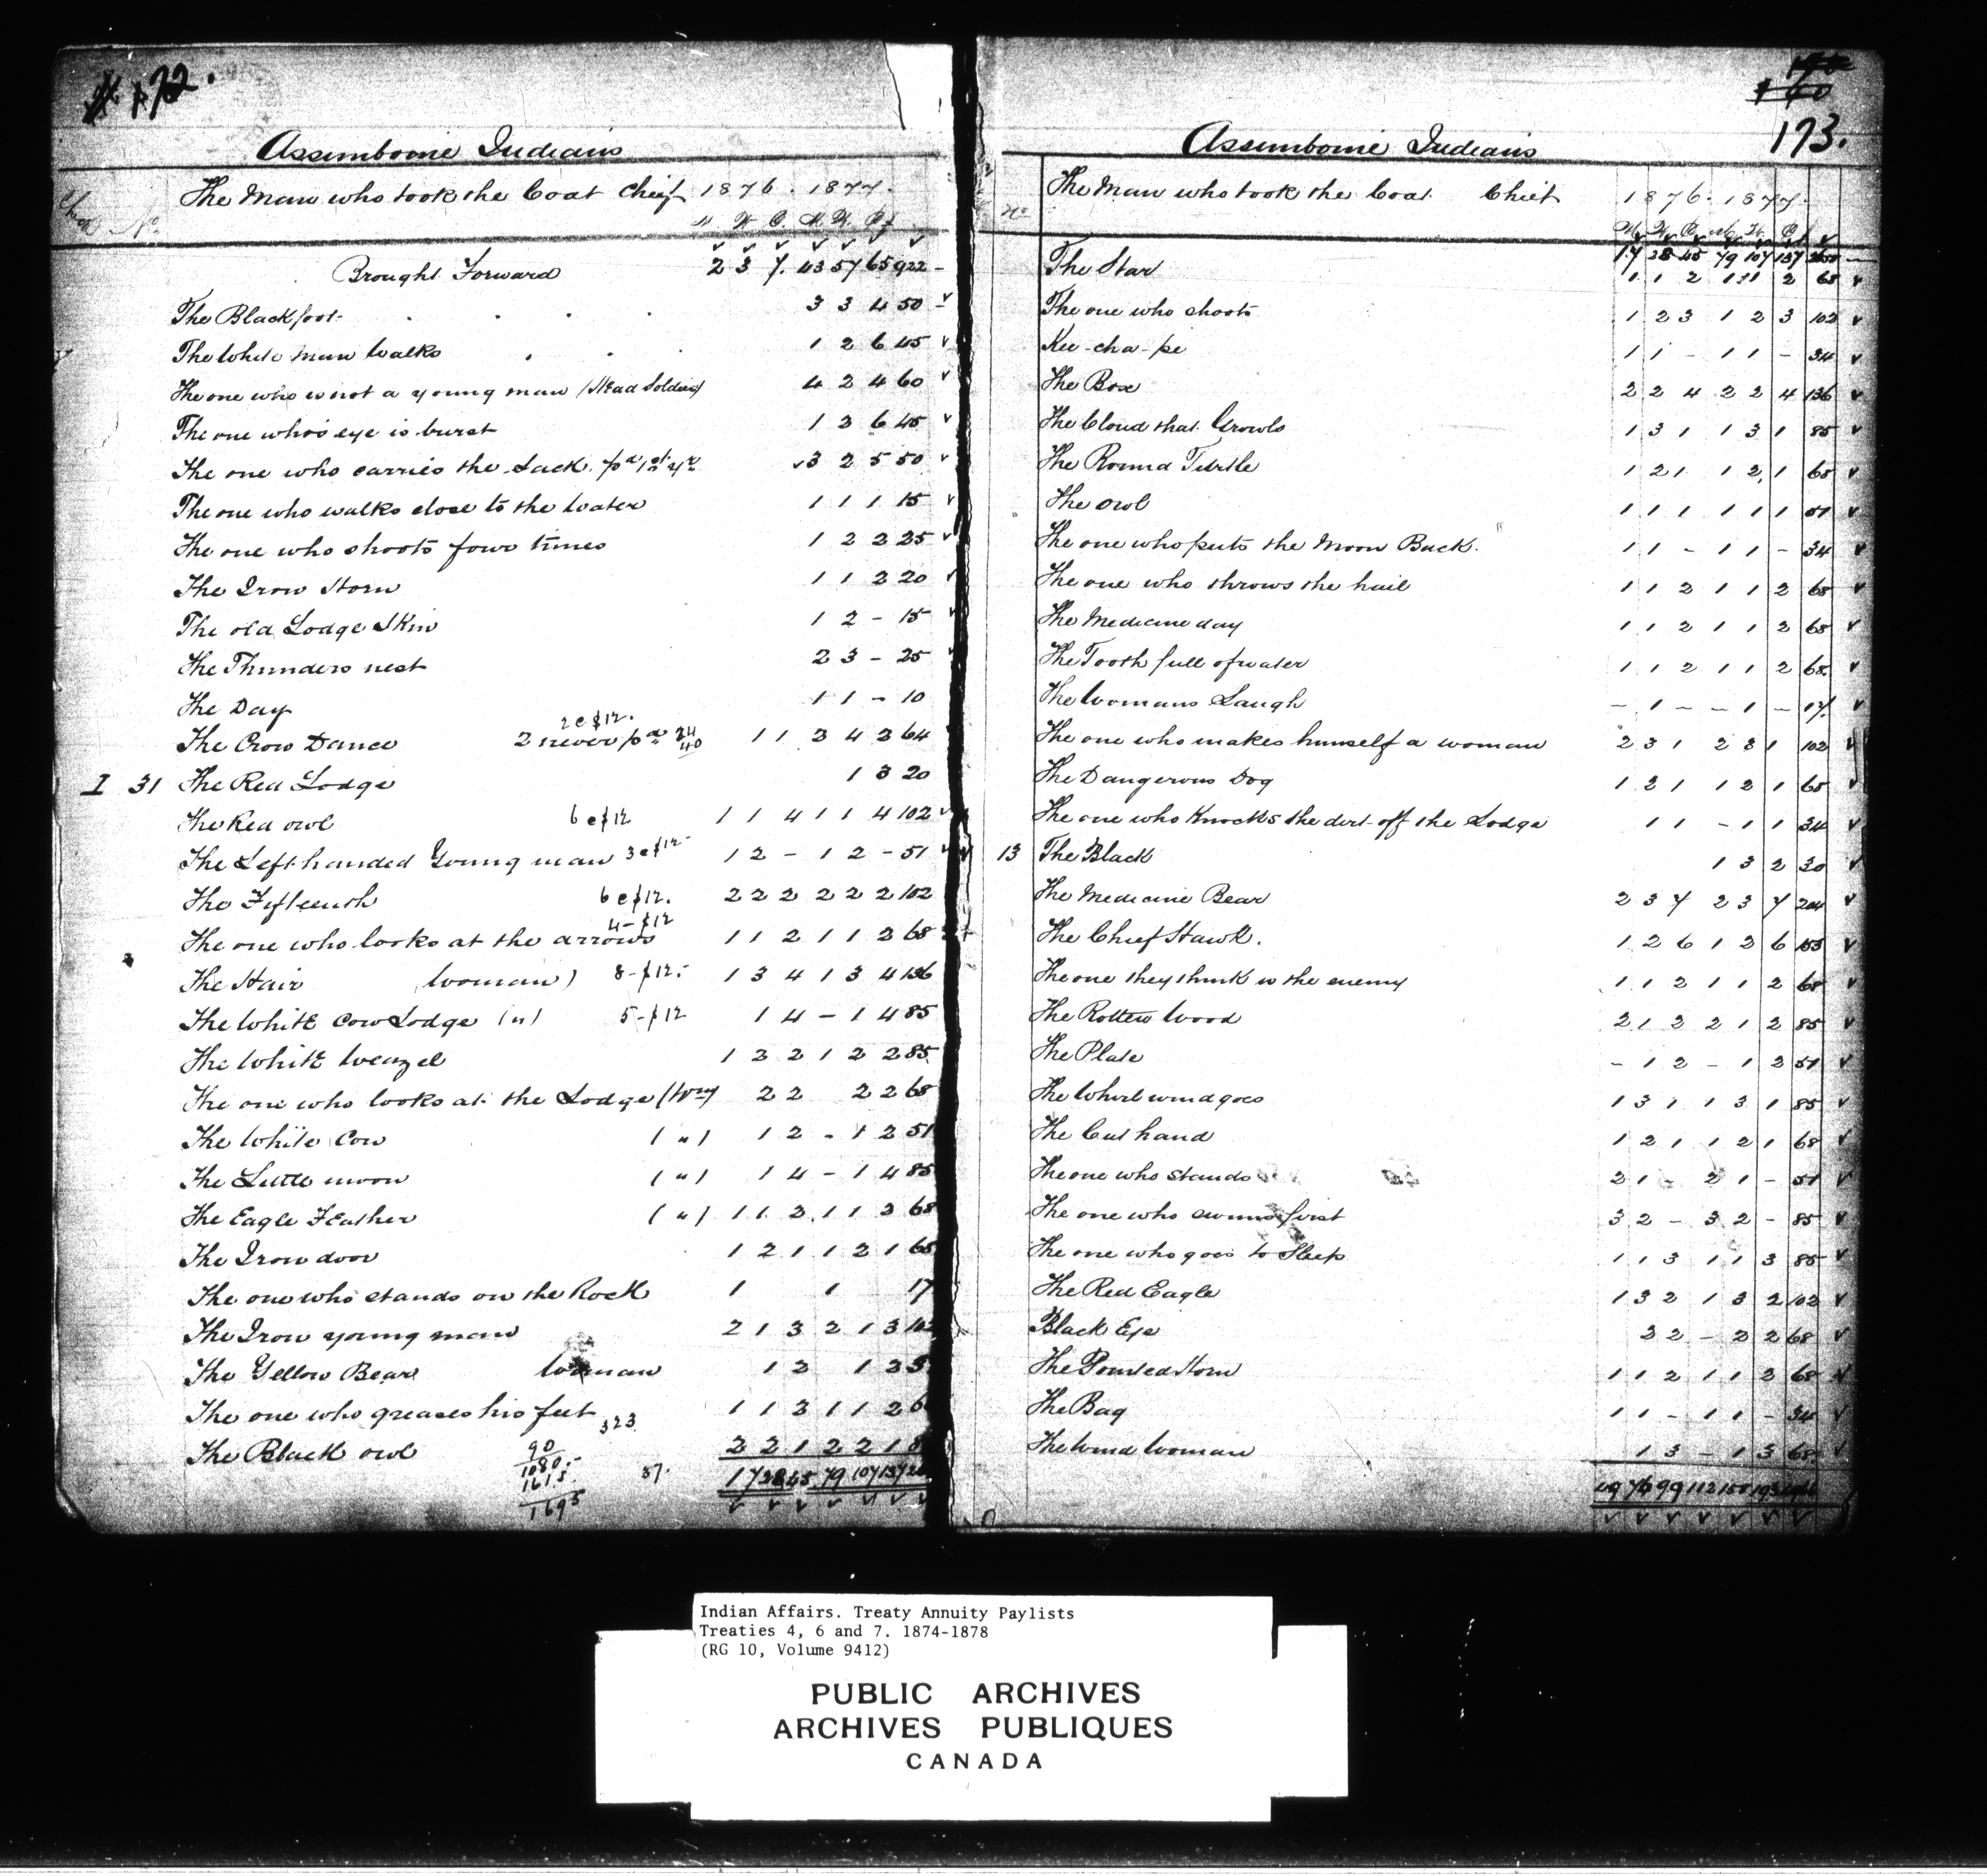 172.
Assiniboine Indians
The Man who took the Coat Chief 1876. 1877.
No.
M W C M W C $
Brought Forward 2 3 7 43 57 65 922 -
The Blackfoot 3 3 4 50
The White Man Walks 1 2 6 45
The one who is not a young man (Head Soldier) 4 2 4 60
The one who's eye is burst 1 2 6 45
The one who carries the Sack 3 2 5 50
The one who walks close to the water 1 1 1 15
The one who shoots four times 1 2 2 25
The Iron Horn 1 1 2 20
The old Lodge Skin 1 2 - 15
The Thunders nest 2 3 - 25
The Day 1 1 - 10
2 @ $12.
The Crow Dance 2 never pd 24 40 1 1 2 4 2 64
I 31 The Red Lodge 1 3 20
The Red owl 6 @ $12 1 1 4 1 1 4 102
The Left handed Young man 3 @ $12 1 2 - 1 2 - 51
The Fifteenth 6 @ $12. 2 2 2 2 2 2 102
4 - $12
The one who looks at the arrows 1 1 2 1 1 2 68
The Hair (woman) 8 - $12. 1 3 4 1 3 4 136
The White Cow Lodge (") 5 - $12 1 4 - 1 4 85
The White Weazel 1 2 2 1 2 2 85
The one who looks at the Lodge (Wm) 2 2 2 2 68
The White Cow (") 1 2 - 1 2 51
The Little moon (") 1 4 - 1 4 85
The Eagle Feather (") 1 1 2 1 1 2 68
The Iron door 1 2 1 1 2 1 68
The one who stands on the Rock 1 1 17
The Iron young man 2 1 3 2 1 3 102
The Yellow Bear Woman 1 2 1 2 5
The one who greases his feet 1 1 2 1 1 2 6
323
The Black owl 2 2 1 2 2 1 8
90
1080.-
1615.
1695
37.
17 28 45 79 107 137
173.
Assiniboine Indians
The Man who took the Coat Chief 1876. 1877.
No
M W C M W C $
17 28 45 79 107 137
The Star 1 1 2 1 1 2 68
The one who shoots 1 2 3 1 2 3 102
Kee-cha-pe 1 1 - 1 1 - 34
The Box 2 2 4 2 2 4 136
The Cloud that Growls 1 3 1 1 3 1 85
The Round Turtle 1 2 1 1 2 1 68
The Owl 1 1 1 1 1 1 51
The one who puts the Moon Back. 1 1 - 1 1 - 34
The one who throws the hail 1 1 2 1 1 2 68
The Medicine day 1 1 2 1 1 2 68
The Tooth full of water 1 1 2 1 1 2 68
The Womans Laugh - 1 - - 1 - 17
The one who makes himself a woman 2 3 1 2 3 1 102
The Dangerous Dog 1 2 1 1 2 1 68
The one who Knocks the dirt off the Lodge 1 1 - 1 1 34
13 The Black 1 3 2 30
The Medicine Bear 2 3 7 2 3 7 204
The Chief Hawk. 1 2 6 1 2 6 153
The one they think is the enemy 1 1 2 1 1 2 68
The Rotten Wood 2 1 2 2 1 2 85
The Plate - 1 2 - 1 2 51
The Whirlwind goes 1 3 1 1 3 1 85
The Cut hand 1 2 1 1 2 1 68
The one who stands 2 1 - 2 1 - 51
The one who swims first 3 2 - 3 2 - 85
The one who goes to Sleep 1 1 3 1 1 3 85
The Red Eagle 1 3 2 1 3 2 102
Black Eye 2 2 - 2 2 68
The Pointed Horn 1 1 2 1 1 2 68
The Bag 1 1 - 1 1 - 34
The Wind Woman 1 3 - 1 3 68
49 76 99 112 158 193
Indian Affairs. Treaty Annuity Paylists
Treaties 4, 6 and 7. 1874-1878
(RG 10, Volume 9412)
PUBLIC ARCHIVES
ARCHIVES PUBLIQUES
CANADA